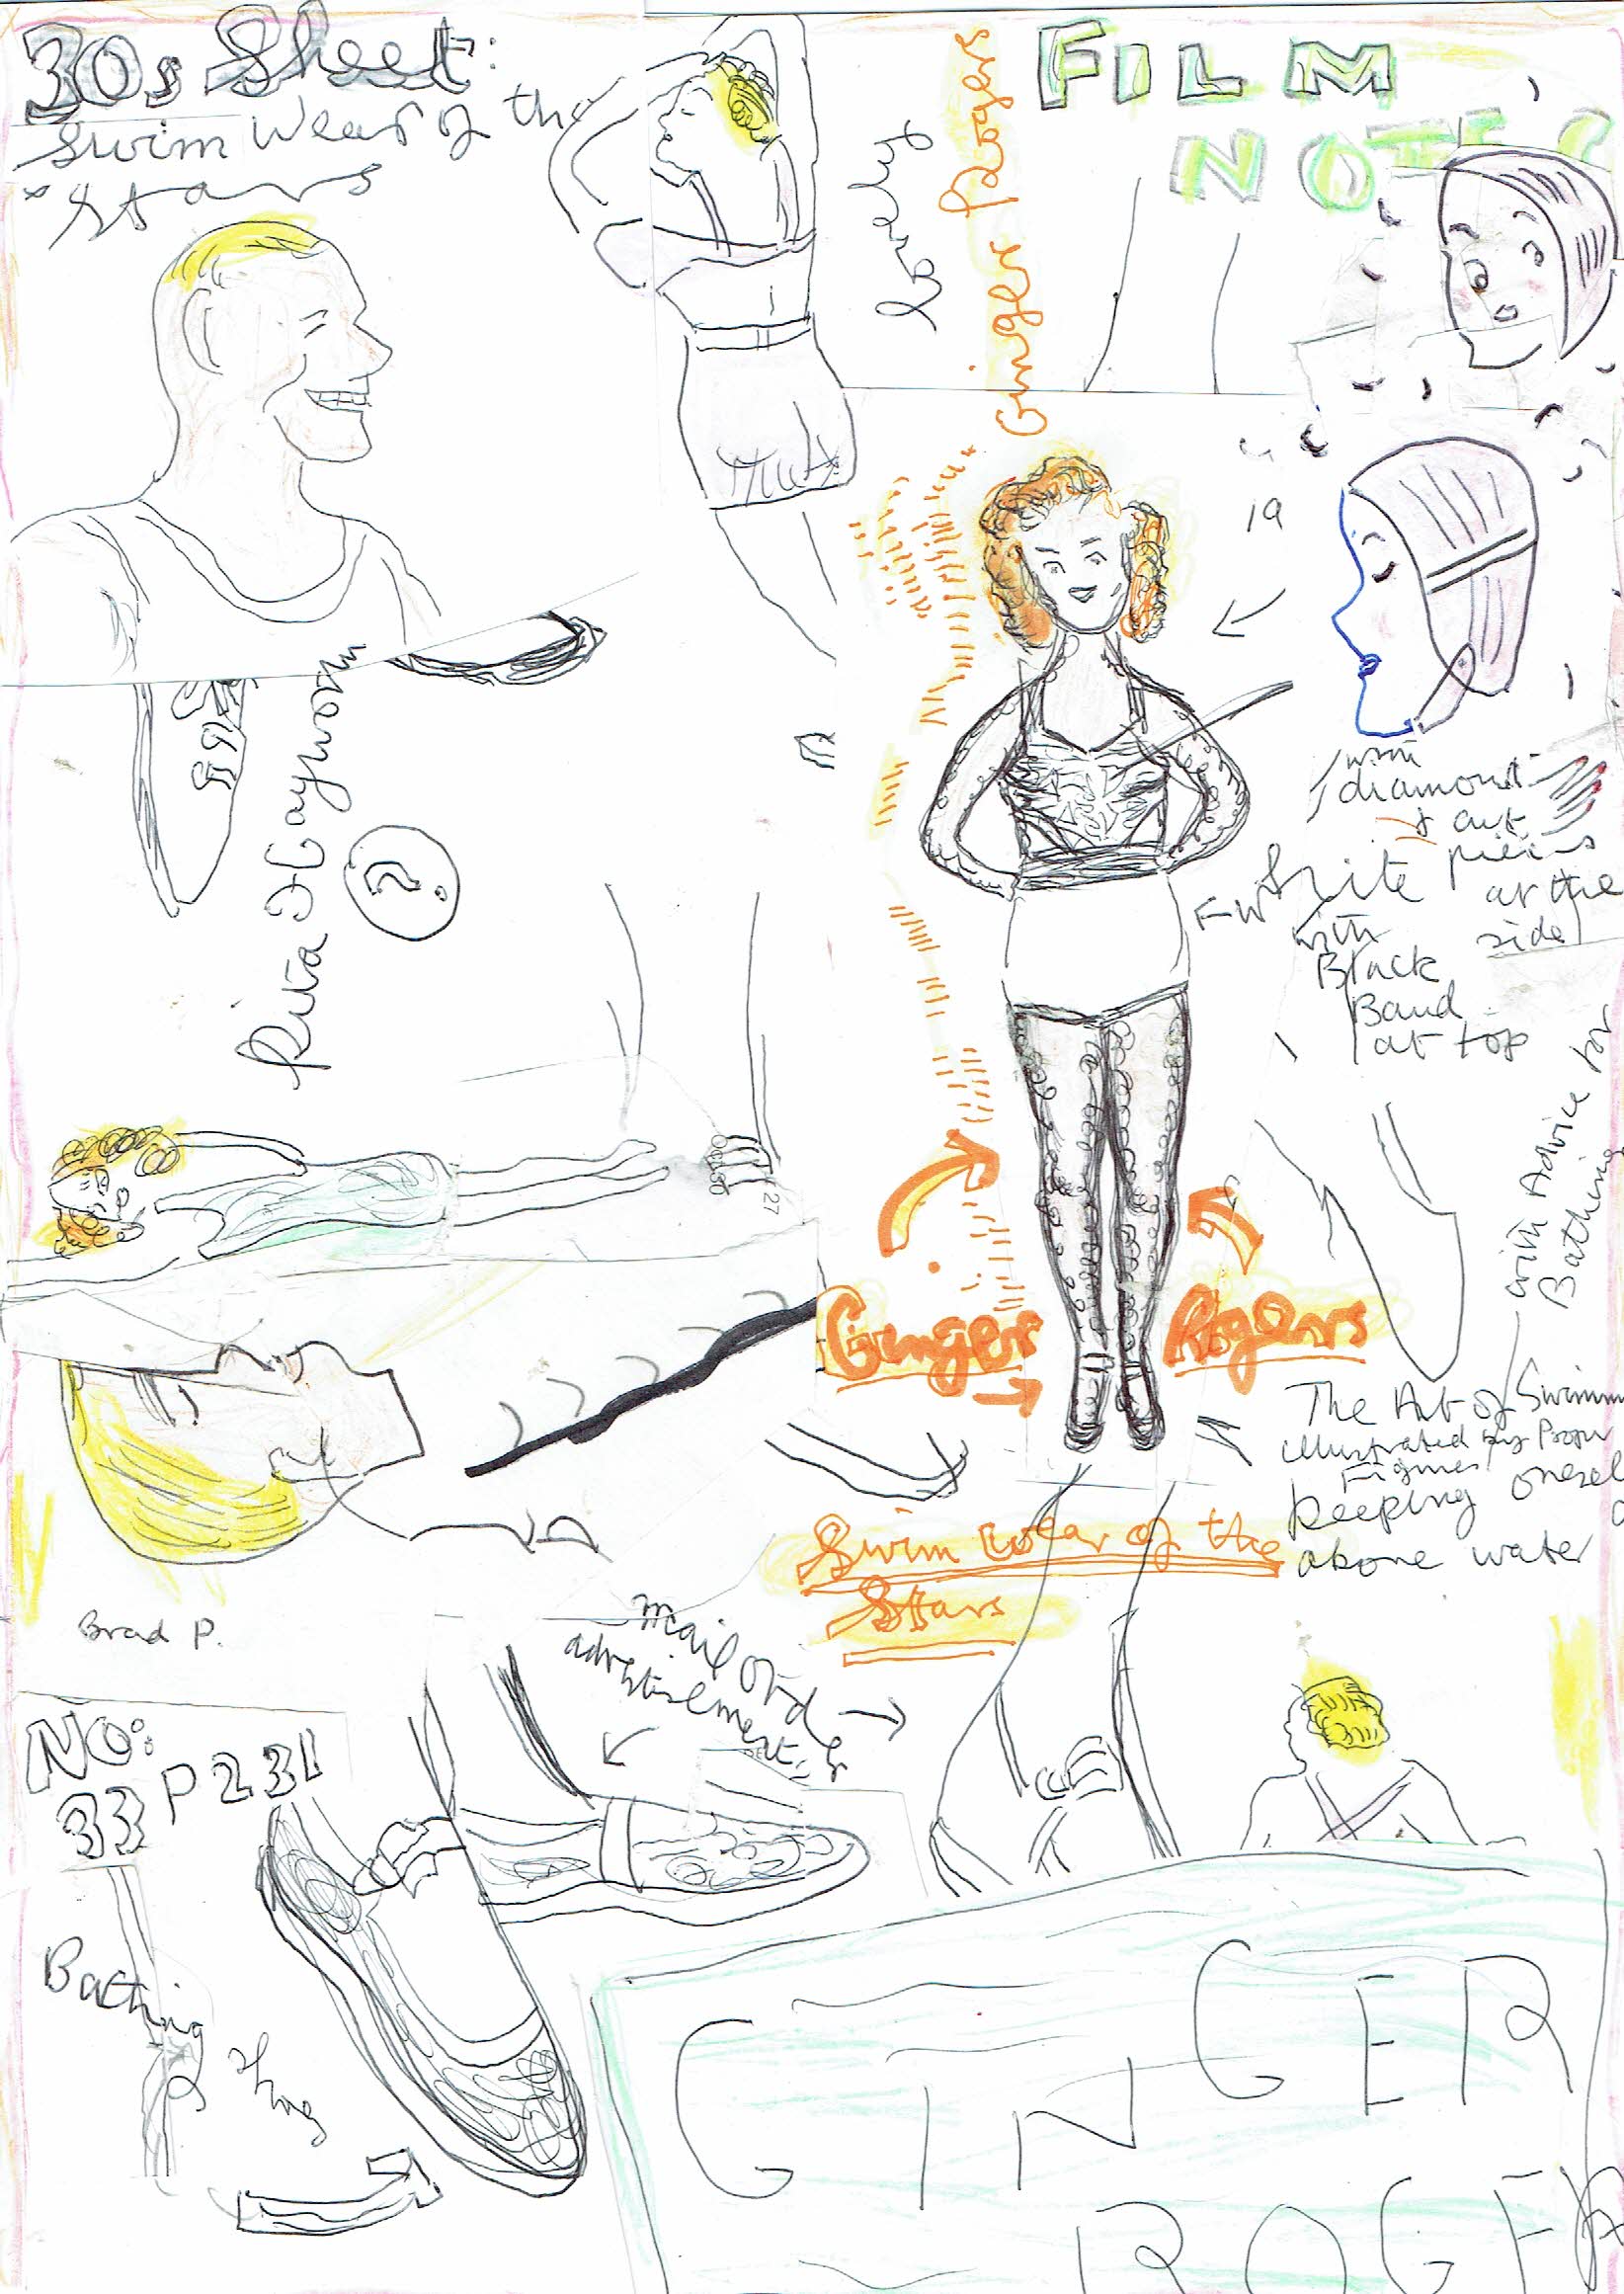 30s Sheet:
Swim Wear of the
Stars
FILM
NOTES
lovely
Ginger Rogers
19
Rita Hayworth
?
with
diamond
cut
pieces
at the
side
White
with
Black
Band
at top
with Advice for
Bathing
27
Ginger
Rogers
The Art of Swimm
illustrated by Proper
Figures
keeping onesel
above water
Swim wear of the
Stars
Brad P.
mail ord
advertisement
NO:
33 P231
Bathing
GINGER
ROGER